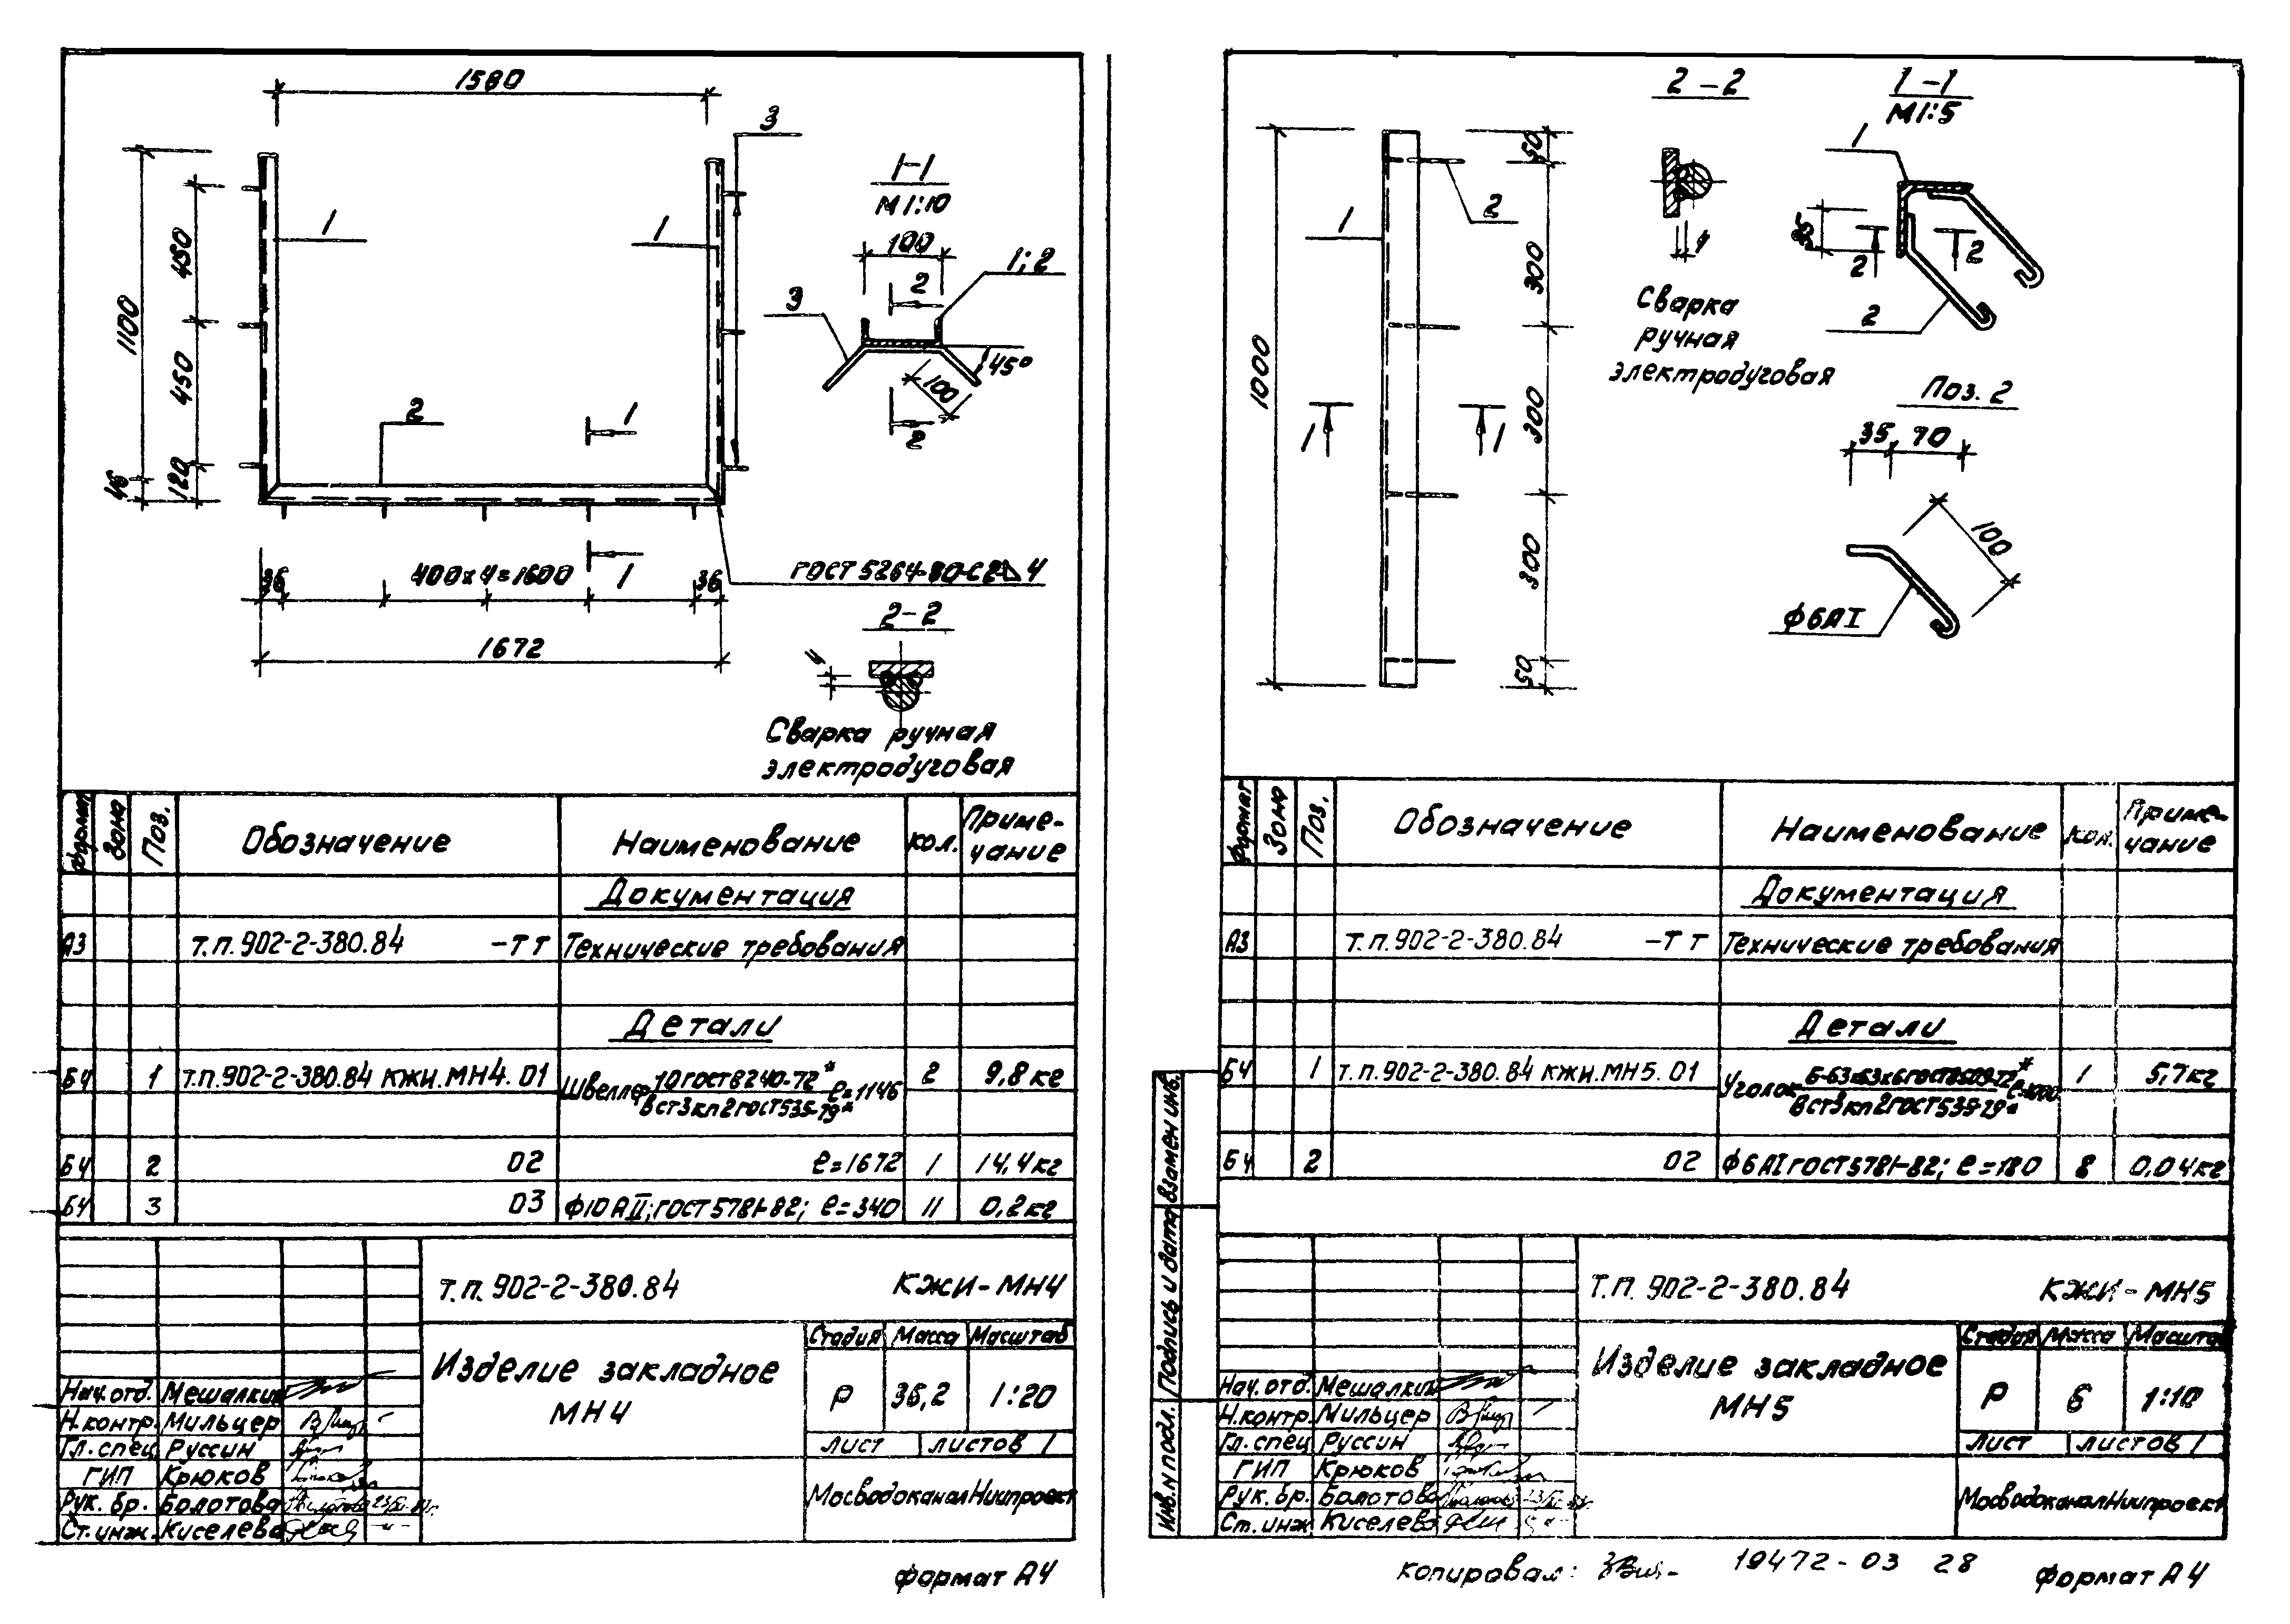 1580
3
1-1
М1:10
1100
450
1
1
100
1; 2
2
3
45°
450
100
2
2
1
120
46
36
400x4=1600
1
36
ГОСТ 5264-80-С2 4
1672
2-2
4
Сварка ручная
электродуговая
Формат
Зона
Поз.
Обозначение
Наименование
кол.
Приме-
чание
Документация
А3 т.п.902-2-380.84 -ТТ Технические требования
Детали
БЧ 1 т.п.902-2-380.84 КЖИ.МН4.01 Швеллер 10 ГОСТ 8240-72* ℓ=1146 2 9,8 кг
ВСт3кп2 ГОСТ 535-79*
БЧ 2 02 ℓ=1672 1 14,4 кг
БЧ 3 03 ф10АII; ГОСТ 5781-82; ℓ=340 11 0,2 кг
т.п. 902-2-380.84 КЖИ-МН4
Изделие закладное
МН4
Стадия Масса Масштаб
Р 36,2 1:20
Лист Листов 1
МосводоканалНиипроект
Нач.отд. Мешалкин
Н.контр. Мильцер
Гл.спец Руссин
ГИП Крюков
Рук. бр. Болотова
Ст.инж. Киселева
Формат А4
2-2
1-1
М1:5
50
1
1
2
300
35
2
2
4
Сварка
ручная
электродуговая
2
1000
Поз. 2
300
35 70
1
1
100
300
ф6АI
50
Формат
Зона
Поз.
Обозначение
Наименование
Кол.
Приме-
чание
Документация
А3 т.п.902-2-380.84 -ТТ Технические требования
Детали
БЧ 1 т.п.902-2-380.84 КЖИ.МН5.01 Уголок Б-63х63х6 ГОСТ 8509-72* ℓ=1000 1 5,7 кг
ВСт3кп2 ГОСТ 535-79*
БЧ 2 02 ф6АI ГОСТ 5781-82; ℓ=180 8 0,04 кг
Взамен инв.
Подпись и дата
Инв. N подл.
Т.П. 902-2-380.84 КЖИ-МН5
Изделие закладное
МН5
Стадия Масса Масштаб
Р 6 1:10
Лист Листов 1
МосводоканалНиипроект
Нач.отд. Мешалкин
Н.контр. Мильцер
Гл.спец Руссин
ГИП Крюков
Рук. бр. Болотова
Ст.инж Киселева
Копировал: 19472-03 28 Формат А4